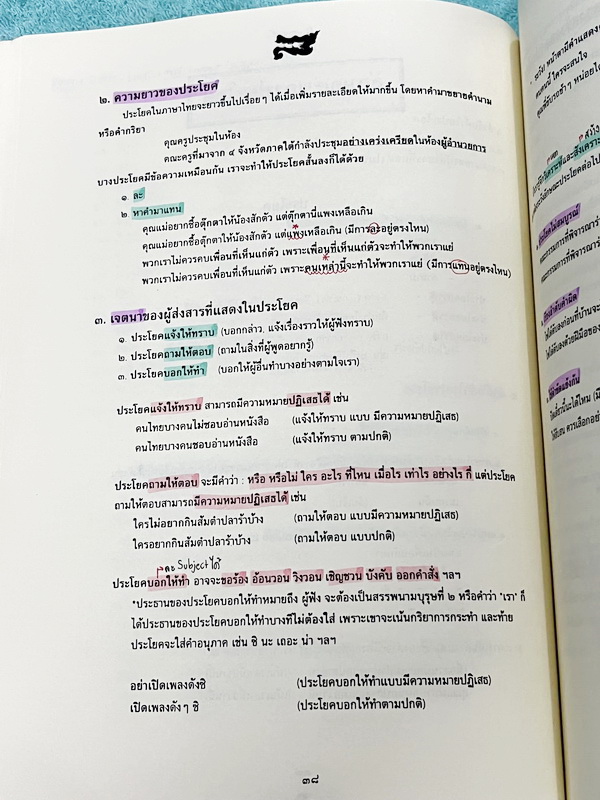 ๒. ความยาวของประโยค
ประโยคในภาษาไทยจะยาวขึ้นไปเรื่อย ๆ ได้เมื่อเพิ่มรายละเอียดให้มากขึ้น โดยหาคำมาขยายคำนาม
หรือคำกริยา
คุณครูประชุมในห้อง
คณะครูที่มาจาก ๔ จังหวัดภาคใต้กำลังประชุมอย่างเคร่งเครียดในห้องผู้อำนวยการ
บางประโยคมีข้อความเหมือนกัน เราจะทำให้ประโยคสั้นลงก็ได้ด้วย
๑. ละ
๒. หาคำมาแทน
คุณแม่อยากซื้อตุ๊กตาให้น้องสักตัว แต่ตุ๊กตานี้แพงเหลือเกิน
คุณแม่อยากซื้อตุ๊กตาให้น้องสักตัว แต่แพงเหลือเกิน (มีการละอยู่ตรงไหน)
พวกเราไม่ควรคบเพื่อนที่เห็นแก่ตัว เพราะเพื่อนที่เห็นแก่ตัวจะทำให้พวกเราแย่
พวกเราไม่ควรคบเพื่อนที่เห็นแก่ตัว เพราะคนเหล่านี้จะทำให้พวกเราแย่ (มีการแทนอยู่ตรงไหน)
๓. เจตนาของผู้ส่งสารที่แสดงในประโยค
๑. ประโยคแจ้งให้ทราบ (บอกกล่าว, แจ้งเรื่องราวให้ผู้ฟังทราบ)
๒. ประโยคถามให้ตอบ (ถามในสิ่งที่ผู้พูดอยากรู้)
๓. ประโยคบอกให้ทำ (บอกให้ผู้อื่นทำบางอย่างตามใจเรา)
ประโยคแจ้งให้ทราบ สามารถมีความหมายปฏิเสธได้ เช่น
คนไทยบางคนไม่ชอบอ่านหนังสือ (แจ้งให้ทราบ แบบ มีความหมายปฏิเสธ)
คนไทยบางคนชอบอ่านหนังสือ (แจ้งให้ทราบ ตามปกติ)
ประโยคถามให้ตอบ จะมีคำว่า : หรือ หรือไม่ ใคร อะไร ที่ไหน เมื่อไร เท่าไร อย่างไร กี่ แต่ประโยค
ถามให้ตอบสามารถมีความหมายปฏิเสธได้ เช่น
ใครไม่อยากกินส้มตำปลาร้าบ้าง (ถามให้ตอบ แบบมีความหมายปฏิเสธ)
ใครอยากกินส้มตำปลาร้าบ้าง (ถามให้ตอบ แบบปกติ)
ละ Subject ได้
ประโยคบอกให้ทำ อาจจะขอร้อง อ้อนวอน วิงวอน เชิญชวน บังคับ ออกคำสั่ง ฯลฯ
*ประธานของประโยคบอกให้ทำหมายถึง ผู้ฟัง จะต้องเป็นสรรพนามบุรุษที่ ๒ หรือคำว่า "เรา" ก็
ได้ประธานของประโยคบอกให้ทำบางทีไม่ต้องใส่ เพราะเขาจะเน้นกริยาการกระทำ และท้าย
ประโยคจะใส่คำอนุภาค เช่น ซิ นะ เถอะ น่า ฯลฯ
อย่าเปิดเพลงดังซิ (ประโยคบอกให้ทำแบบมีความหมายปฏิเสธ)
เปิดเพลงดัง ๆ ซิ (ประโยคบอกให้ทำตามปกติ)
๓๘